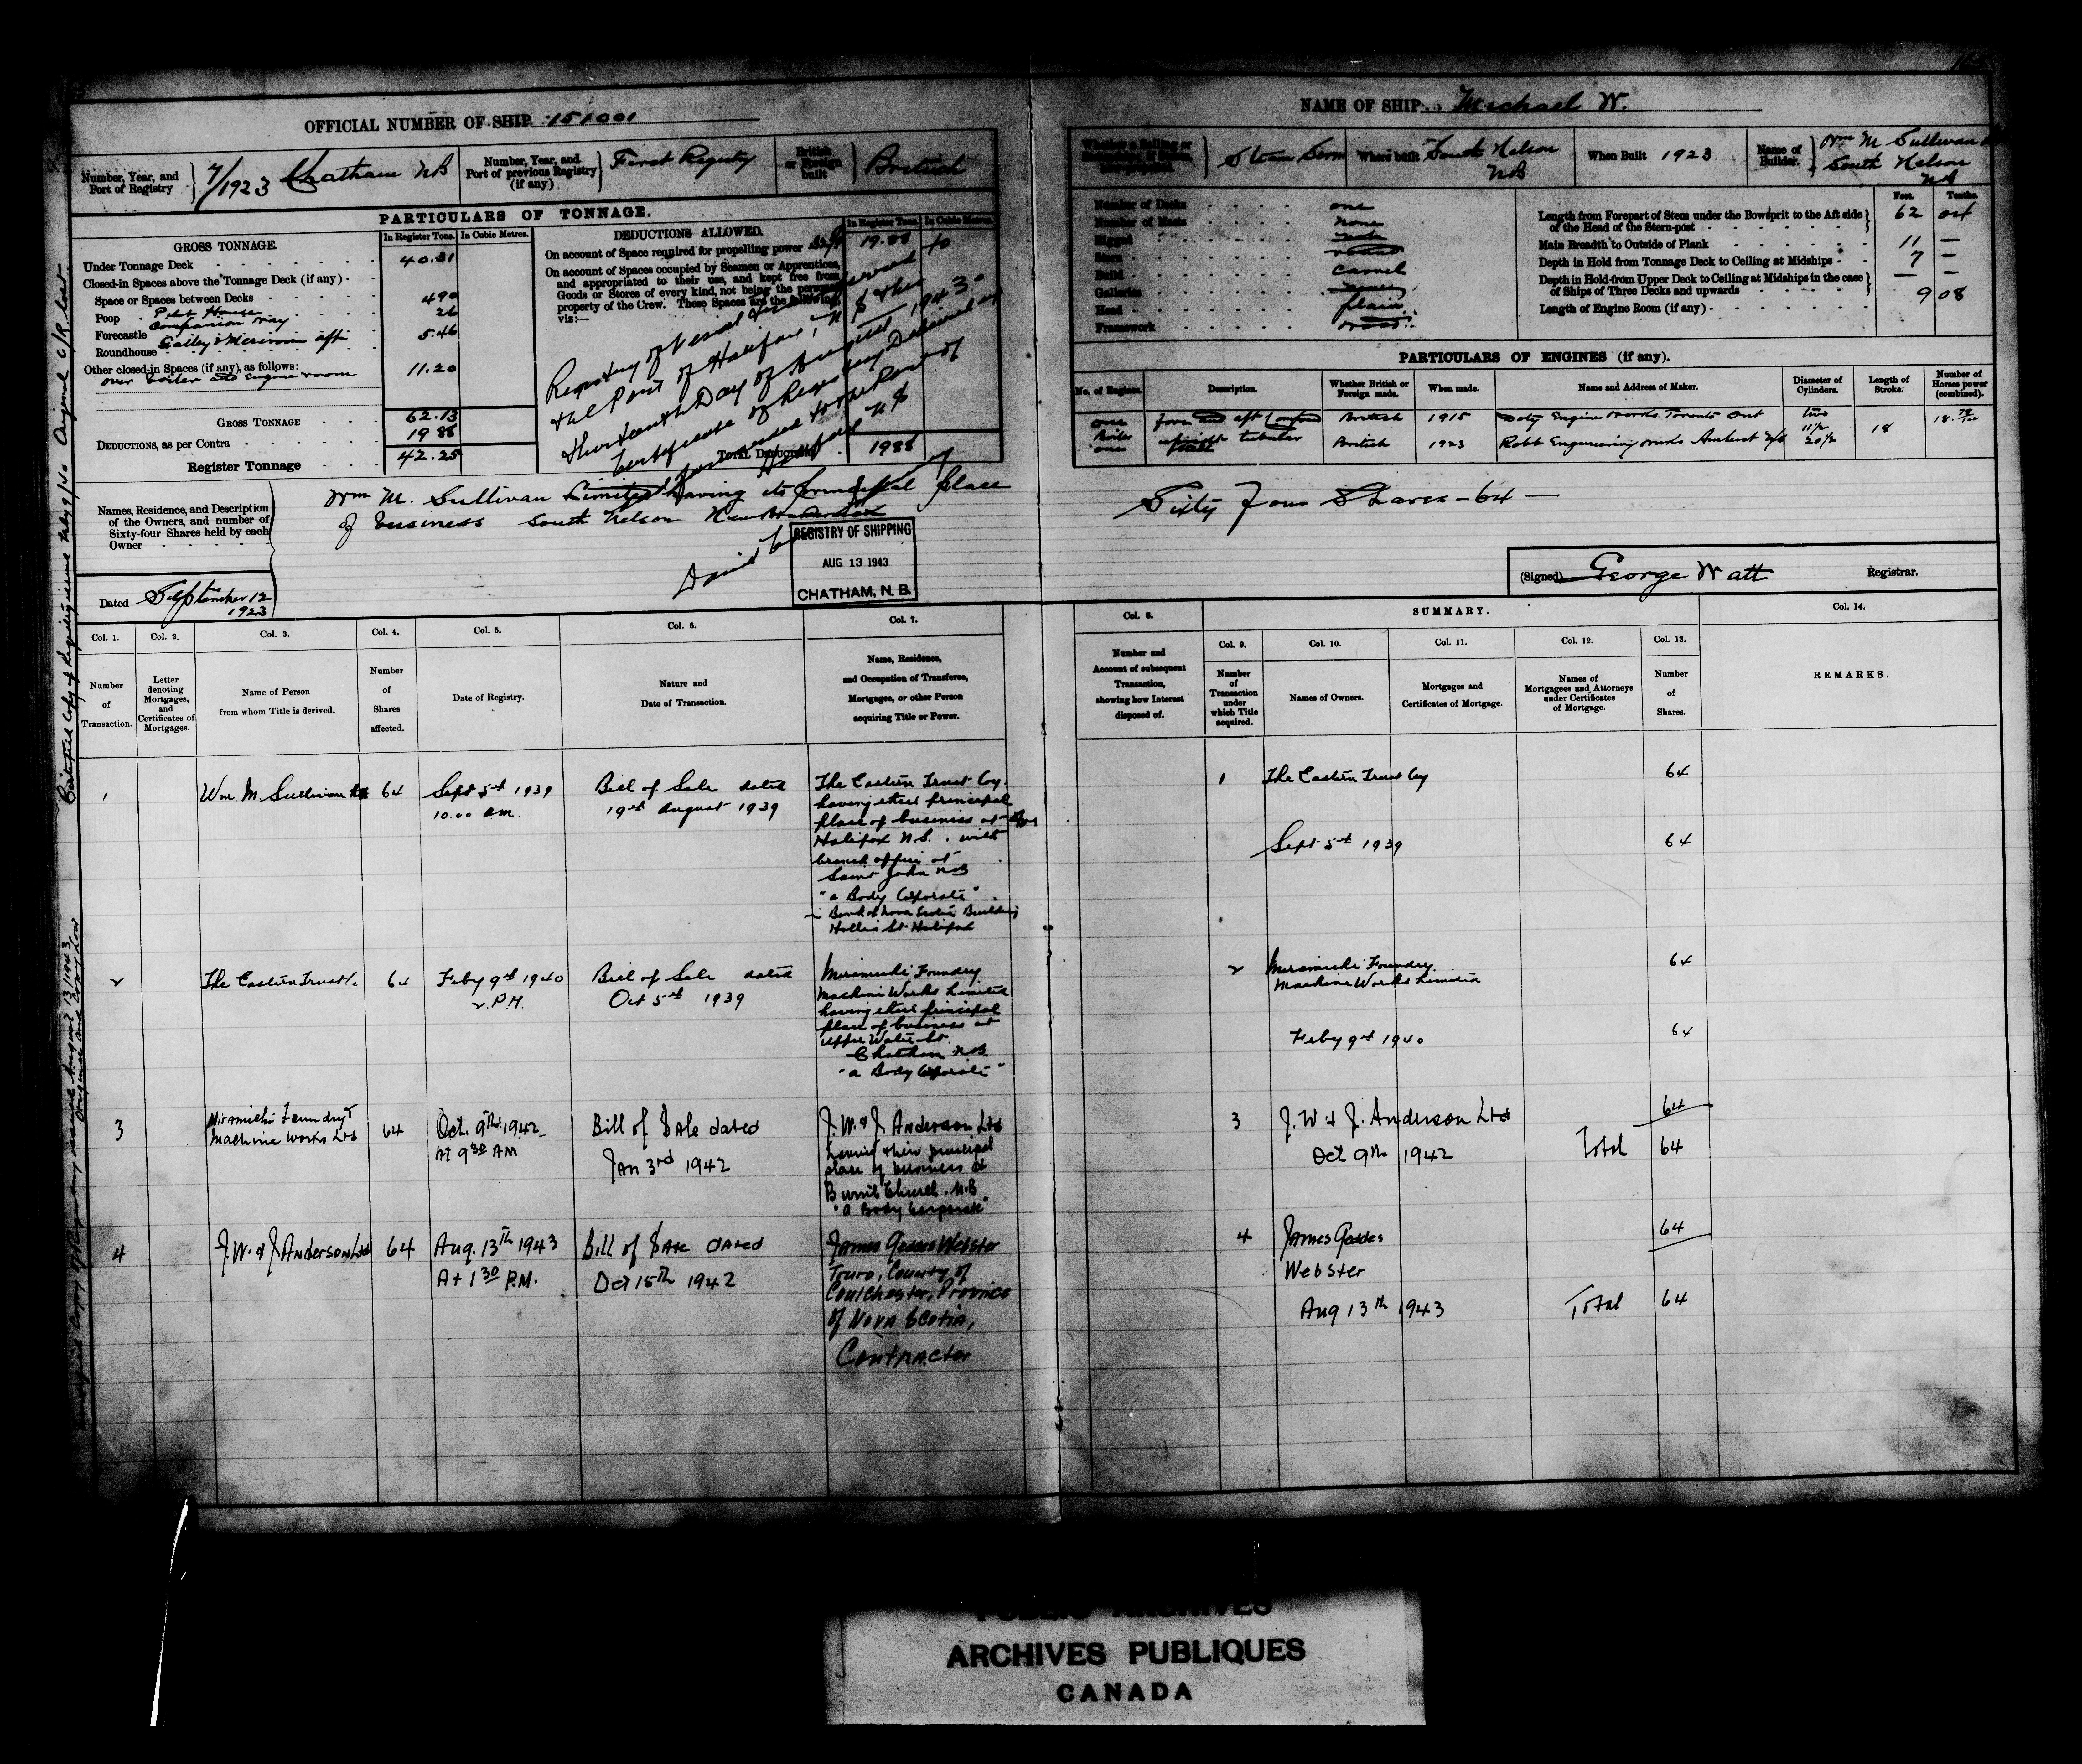 OFFICIAL NUMBER OF SHIP 151001
NAME OF SHIP Michael W.
Number, Year, and Port of Registry 7/1923 Chatham NB
Number, Year, and Port of previous Registry (if any) First Registry
British or Foreign built British
Whether a Sailing or Steam Screw
Where built South Nelson NB
When Built 1923
Name of Builder. Wm M Sullivan South Nelson NB
PARTICULARS OF TONNAGE.
GROSS TONNAGE.
In Register Tons. In Cubic Metres.
Under Tonnage Deck 40.31
Closed-in Spaces above the Tonnage Deck (if any)
Space or Spaces between Decks 490
Poop Pilot House 26
Forecastle Companion way 5.46
Roundhouse Galley & Messroom aft
Other closed-in Spaces (if any), as follows: 11.20
over boiler and engine room
GROSS TONNAGE 62.13
DEDUCTIONS, as per Contra 19 88
Register Tonnage 42.25
DEDUCTIONS ALLOWED.
In Register Tons. In Cubic Metres.
On account of Space required for propelling power 19.88
On account of Spaces occupied by Seamen or Apprentices, and appropriated to their use, and kept free from Goods or Stores of every kind, not being the personal property of the Crew. These Spaces are the following, viz:—
Registry of Vessel transferred to
the Port of Halifax, N S this
thirteenth Day of August 1943.
Certificate of Registry Delivered up
forwarded to the Port of
Halifax N S
TOTAL DEDUCTIONS 1988
Number of Decks one
Number of Masts none
Rigged
Stern round
Build carvel
Galleries none
Head plain
Framework wood
Length from Forepart of Stem under the Bowsprit to the Aft side of the Head of the Stern-post
Feet. Tenths.
62
Main Breadth to Outside of Plank 11 —
Depth in Hold from Tonnage Deck to Ceiling at Midships 7 —
Depth in Hold from Upper Deck to Ceiling at Midships in the case of Ships of Three Decks and upwards — —
Length of Engine Room (if any) 9 08
PARTICULARS OF ENGINES (if any).
No. of Engines. Description. Whether British or Foreign made. When made. Name and Address of Maker. Diameter of Cylinders. Length of Stroke. Number of Horses power (combined).
one fore and aft Compound British 1915 Doty Engine Works Toronto Ont two 11½ 20½ 18
Boiler one upright tubular British 1923 Robb Engineering Works Amherst N/S
Names, Residence, and Description of the Owners, and number of Sixty-four Shares held by each Owner
Wm M. Sullivan Limited having its principal place
of business South Nelson New Brunswick
Sixty Four Shares — 64 —
REGISTRY OF SHIPPING
AUG 13 1943
CHATHAM, N. B.
Dated September 12 1923
(Signed) George Watt Registrar.
Col. 1. Col. 2. Col. 3. Col. 4. Col. 5. Col. 6. Col. 7. Col. 8. SUMMARY. Col. 14.
Col. 9. Col. 10. Col. 11. Col. 12. Col. 13.
Number of Transaction.
Letter denoting Mortgages, and Certificates of Mortgages.
Name of Person from whom Title is derived.
Number of Shares affected.
Date of Registry.
Nature and Date of Transaction.
Name, Residence, and Occupation of Transferee, Mortgagee, or other Person acquiring Title or Power.
Number and Account of subsequent Transaction, showing how Interest disposed of.
Number of Transaction under which Title acquired.
Names of Owners.
Mortgages and Certificates of Mortgage.
Names of Mortgagees and Attorneys under Certificates of Mortgage.
Number of Shares.
REMARKS.
1 Wm. M. Sullivan Ltd 64 Sept 5th 1939 10.00 a.m. Bill of Sale dated 19th August 1939
The Eastern Trust Coy.
having their principal
place of business at
Halifax N.S. with
branch office at
Saint John NB
"a Body Corporate"
Bank of Nova Scotia Building
Hollis St Halifax
1 The Eastern Trust Coy 64
Sept 5th 1939 64
2 The Eastern Trust Co 64 Feby 9th 1940 2.P.M. Bill of Sale dated Oct 5th 1939
Miramichi Foundry
Machine Works Limited
having their principal
place of business at
Upper Water St.
Chatham NB
"a Body Corporate"
2 Miramichi Foundry Machine Works Limited 64
Feby 9th 1940 64
3 Miramichi Foundry Machine Works Ltd 64 Oct. 9th. 1942 At 9 30 AM Bill of Sale dated Jan 3rd 1942
J.W. & J. Anderson Ltd
having their principal
place of business at
Burnt Church, N.B
"a Body Corporate"
3 J. W & J. Anderson Ltd 64
Oct 9th 1942 Total 64
4 J.W. & J Anderson Ltd 64 Aug. 13th 1943 At 1 30 P.M. Bill of Sale dated Oct 15th 1942
James Geddes Webster
Truro, County of
Coulchester, Province
of Nova Scotia,
Contractor
4 James Geddes Webster 64
Aug 13th 1943 Total 64
Certified Copy of Registry issued July 9/40 Original C/R lost
Copy of Registry issued August 13/1943, Original and Copy lost
PUBLIC ARCHIVES
ARCHIVES PUBLIQUES
CANADA